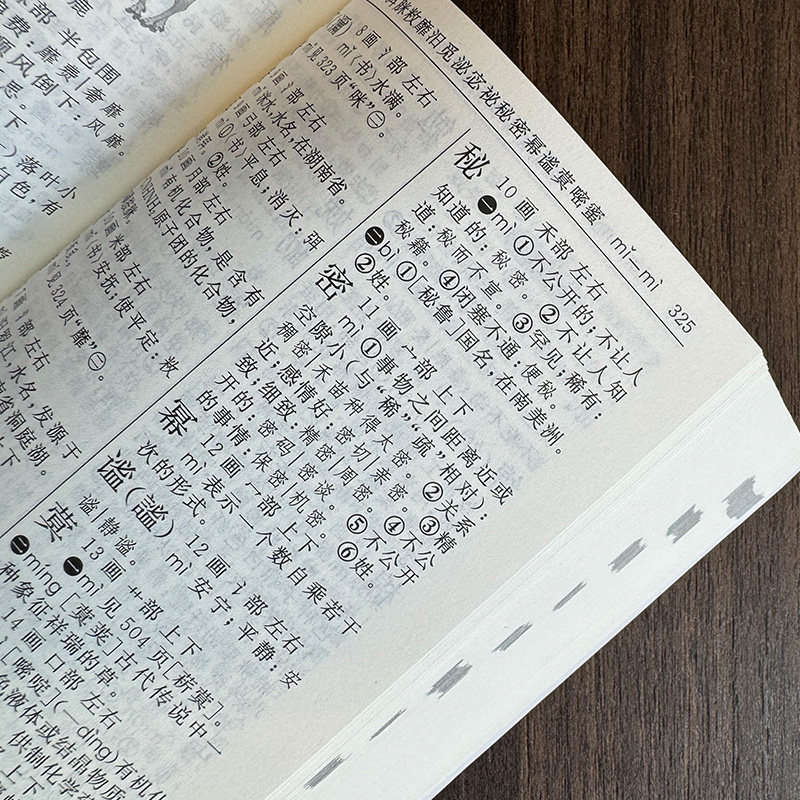 脒敉靡汨觅泌宓祕秘密幂谧蓂嘧蜜 mǐ—mì 325
部 半包围
费：靡费|奢靡。
顺风倒下：风靡。
落叶小
白色，有
8画 氵部 左右
mǐ〈书〉水满。
mǐ见323页“咪”㊁。
氵部 左右
水，水名，在湖南省。
弓部 左右
①〈书〉平息，消灭：弭
②姓。
月部 左右
有机化合物，是含有
原子团的化合物，
米部 左右
〈书〉安抚；使平定：敉
见324页“靡”㊀。
氵部 左右
罗江，水名，发源于
省洞庭湖。
上下
秘 10画 禾部 左右
㊀mì ①不公开的；不让人
知道的：秘密。②不让人知
道：秘而不宣。③罕见；稀有：
秘籍。④闭塞不通：便秘。
㊁bì ①[秘鲁]国名，在南美洲。
②姓。
密 11画 宀部 上下
mì ①事物之间距离近或
空隙小（与“稀”“疏”相对）：
稠密|禾苗种得太密。②关系
近；感情好：密切|亲密。③精
致；细致：精密|周密。④不公
开的：密码|密谈。⑤不公开
的事情：保密|机密。⑥姓。
幂 12画 冖部 上下
mì 表示一个数自乘若干
次的形式。
谧（謐） 12画 讠部 左右
mì 安宁；平静：安
谧|静谧。
蓂 13画 艹部 上下
㊀mì 见504页[菥蓂]。
㊁míng [蓂荚]古代传说中一
种象征祥瑞的草。
14画 口部 左右
[嘧啶]（—dìng）有机化
色液体或结晶物质
供制化学
上下